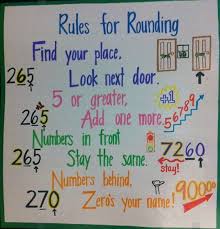 Rules for Rounding
Find your place,
265
Look next door.
5 or greater,
+1
265
Add one more.
Numbers in front
265
Stay the same.
7260
stay!
Numbers behind,
270
Zero's your name!
90000